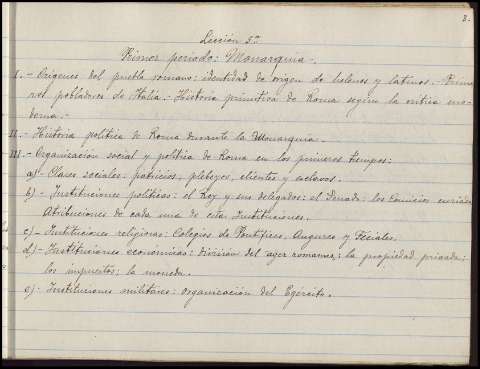 8.
Lección 5ª
Primer periodo: Monarquia.-
I.- Orígenes del pueblo romano: identidad de origen de helenos y latinos.- Prime-
ros pobladores de Italia.- Historia primitiva de Roma según la critica mo-
derna.-
II.- Historia política de Roma durante la Monarquia.
III.- Organización social y política de Roma en los primeros tiempos:
a)- Clases sociales: patricios, plebeyos, clientes y esclavos.
b)- Instituciones políticas: el Rey y sus delegados: el Senado: los Comicios curiados
Atribuciones de cada una de estas Instituciones.
c)- Instituciones religiosas: Colegios de Pontífices, Augures y Feciales.
d)- Instituciones económicas: división del ager romanus: la propiedad privada:
los impuestos: la moneda.
e)- Instituciones militares: organización del Ejército.